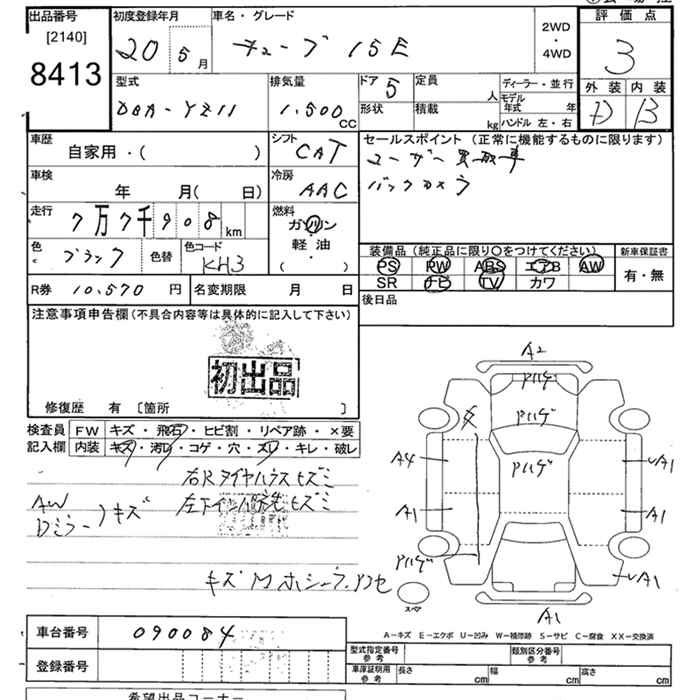 出品番号 初度登録年月 車名・グレード 評価点
[2140] 20 5月 キューブ 15E 2WD・4WD 3
8413
型式 排気量 ドア 5 定員 人 ディーラー・並行 外装 内装
DBA-YZ11 1,500cc 形状 積載 kg モデル年式 年 D B
ハンドル 左・右
車歴 シフト セールスポイント(正常に機能するものに限ります)
自家用・( ) CAT ユーザー買取車
車検 冷房 バックカメラ
年 月( 日) AAC
走行 燃料
7万7千908km ガソリン
軽油
( )
色 ブラック 色替 色コード KH3 装備品(純正品に限り○をつけてください) 新車保証書
PS RW ABS エアB AW 有・無
R券 10,570円 名変期限 月 日 SR ナビ TV カワ
後日品
注意事項申告欄(不具合内容等は具体的に記入して下さい)
初出品
修復歴 有 [箇所 ]
検査員 FW キズ・飛石・ヒビ割・リペア跡・×要
記入欄 内装 キズ・汚レ・コゲ・穴・スレ・キレ・破レ
右Rタイヤハウスヒズミ
AW
Dミラー )キズ
A2
アハゲ
アハゲ
アハゲ
A4 A1
A1 A1
アハゲ
A1
スペア A1
A-キズ E-エクボ U-凹み W-補修跡 S-サビ C-腐食 XX-交換済
車台番号 090084
登録番号
型式指定番号 参考 類別区分番号 参考
車庫証明用 参考 長さ cm 幅 cm 高さ cm
希望出品コーナー